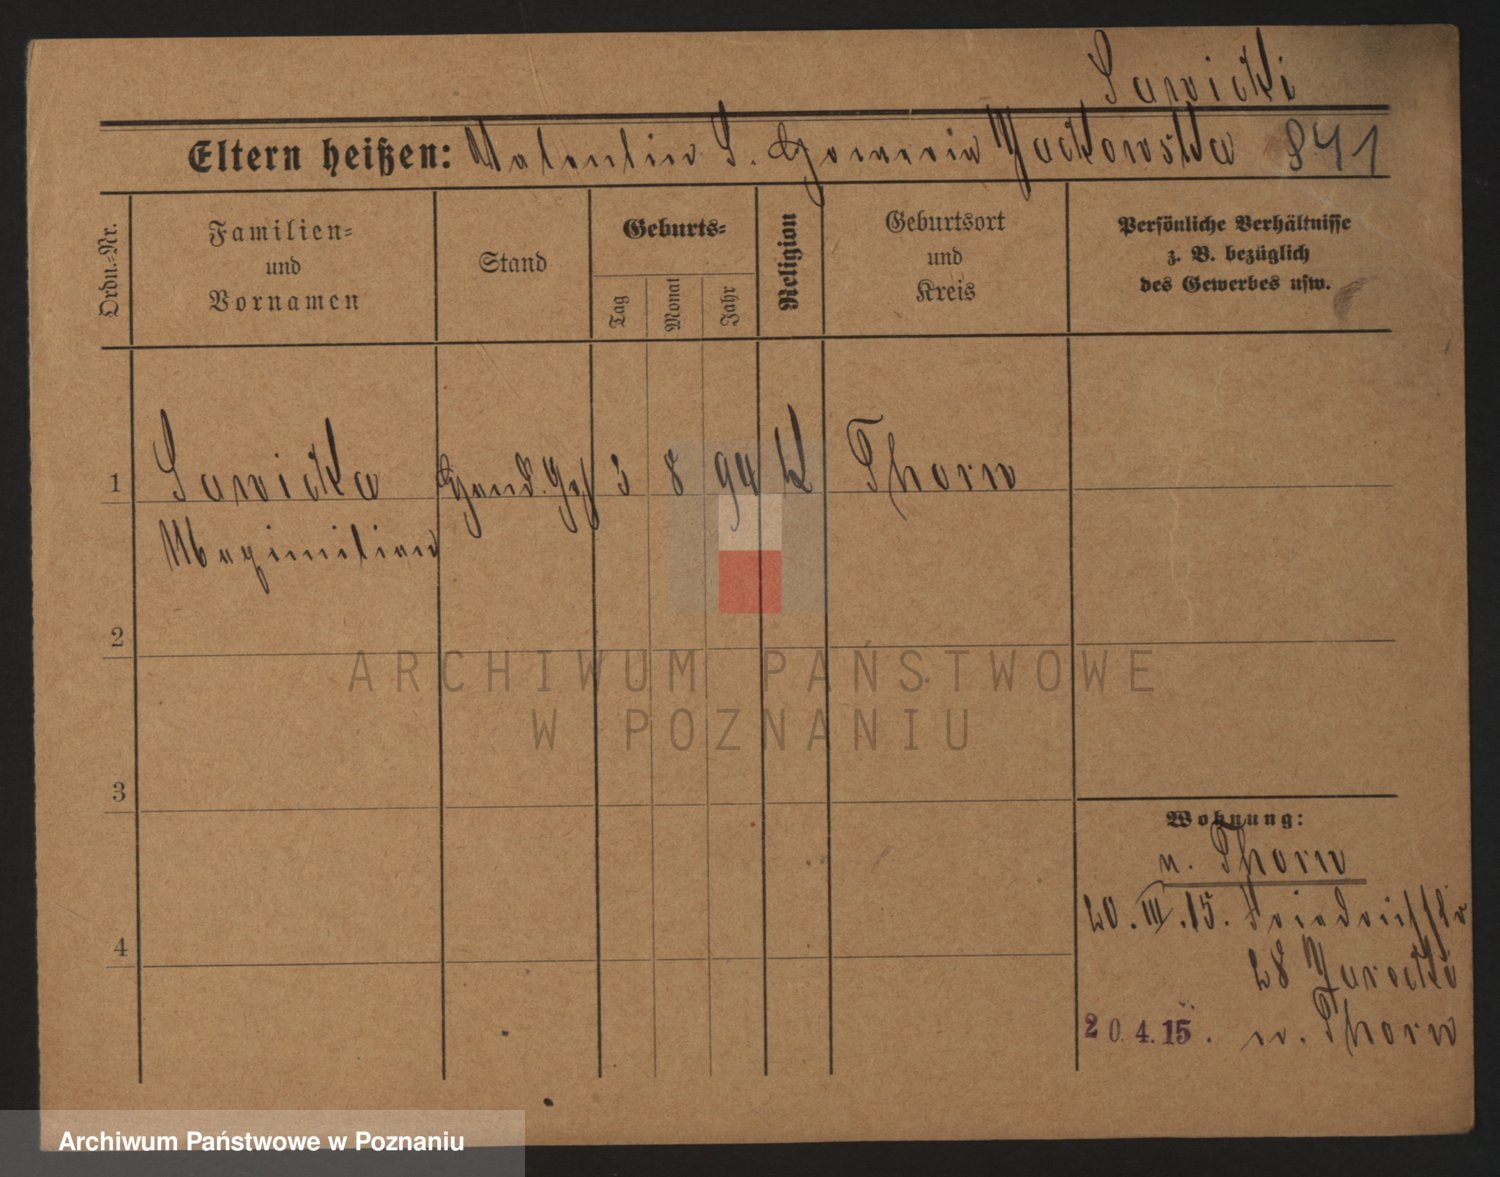 Sawicki
Eltern heißen: Valentin S. Honoria Jackowska 841
Ordn.-Nr.
Familien-
und
Vornamen
Stand
Geburts-
Tag
Monat
Jahr
Religion
Geburtsort
und
Kreis
Persönliche Verhältnisse
z. B. bezüglich
des Gewerbes usw.
1 Sawicka Hand. 3 8 94 K Thorn
Maximilian
2
3
4
Wohnung:
n. Thorn
20.III.15. Friedrichstr
28 Jarocki
20.4.15. n. Thorn
ARCHIWUM PAŃSTWOWE
W POZNANIU
Archiwum Państwowe w Poznaniu